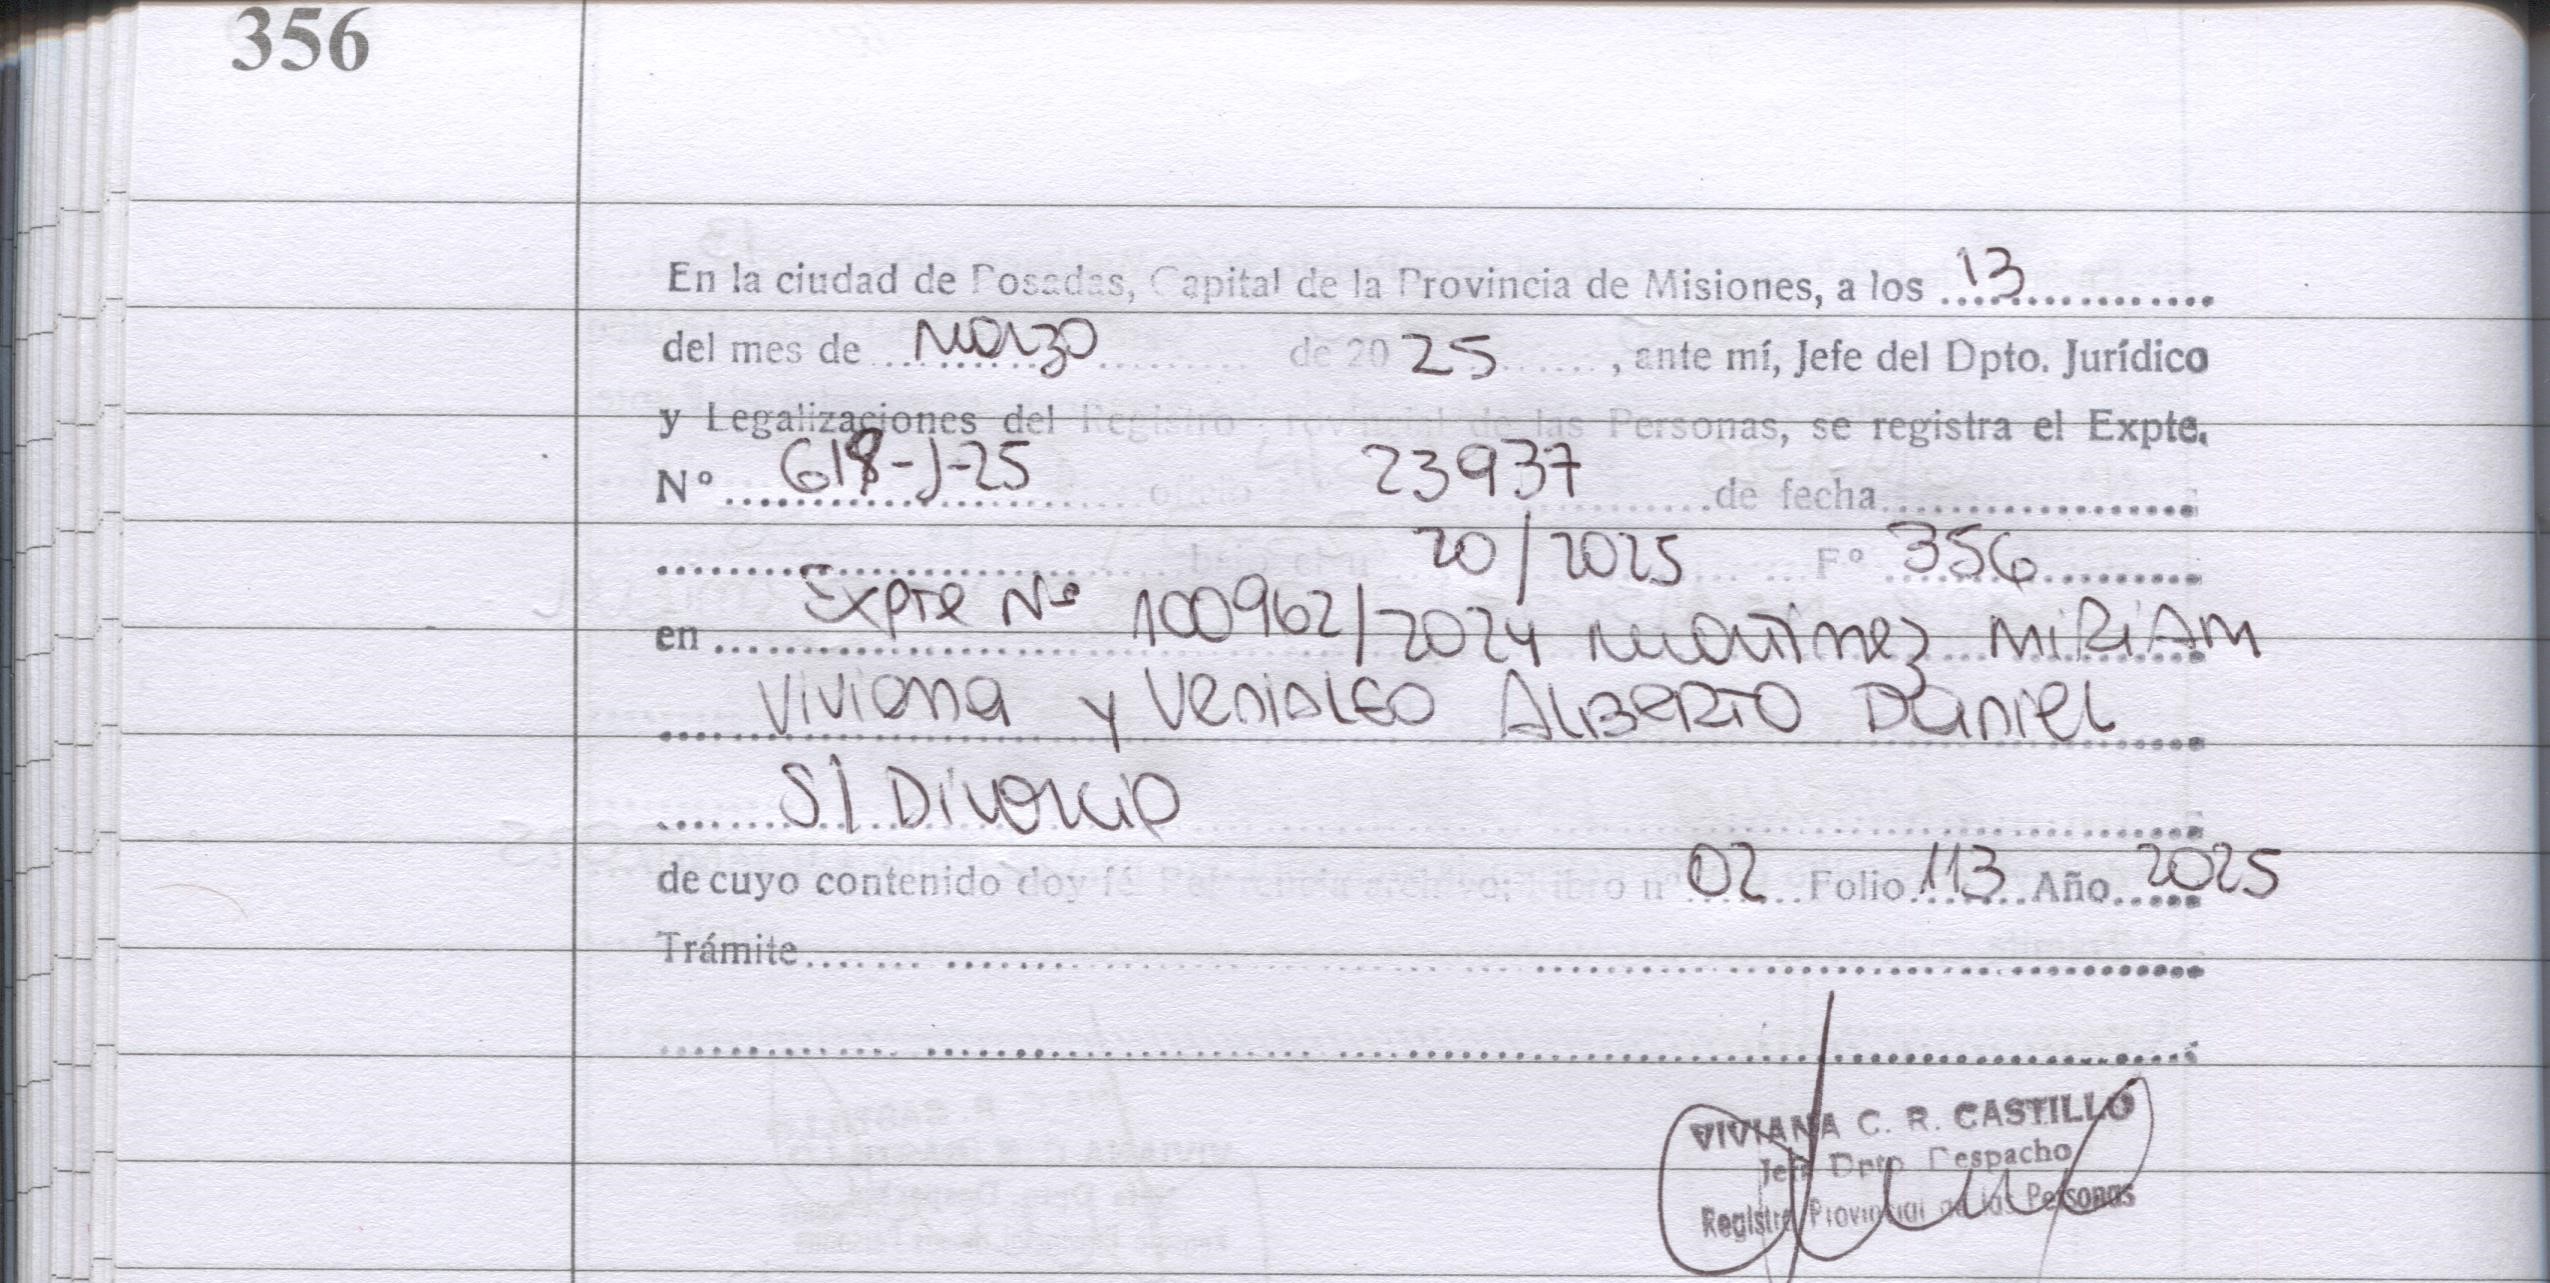 356
En la ciudad de Posadas, Capital de la Provincia de Misiones, a los 13
del mes de Marzo de 2025, ante mí, Jefe del Dpto. Jurídico
y Legalizaciones del Registro Provincial de las Personas, se registra el Expte.
N° 618-J-25 oficio 23937 de fecha
bajo el n° 20/2025 F° 356
en Expte N° 100962/2024 Martinez MiRiAM
Viviana y Venialgo ALBERTO DANIEL
S/ Divorcio
de cuyo contenido doy fé Referencia archivo: Libro n° 02 Folio 113 Año 2025
Trámite
VIVIANA C. R. CASTILLO
Jefe Dpto. Despacho
Registro Provincial de las Personas